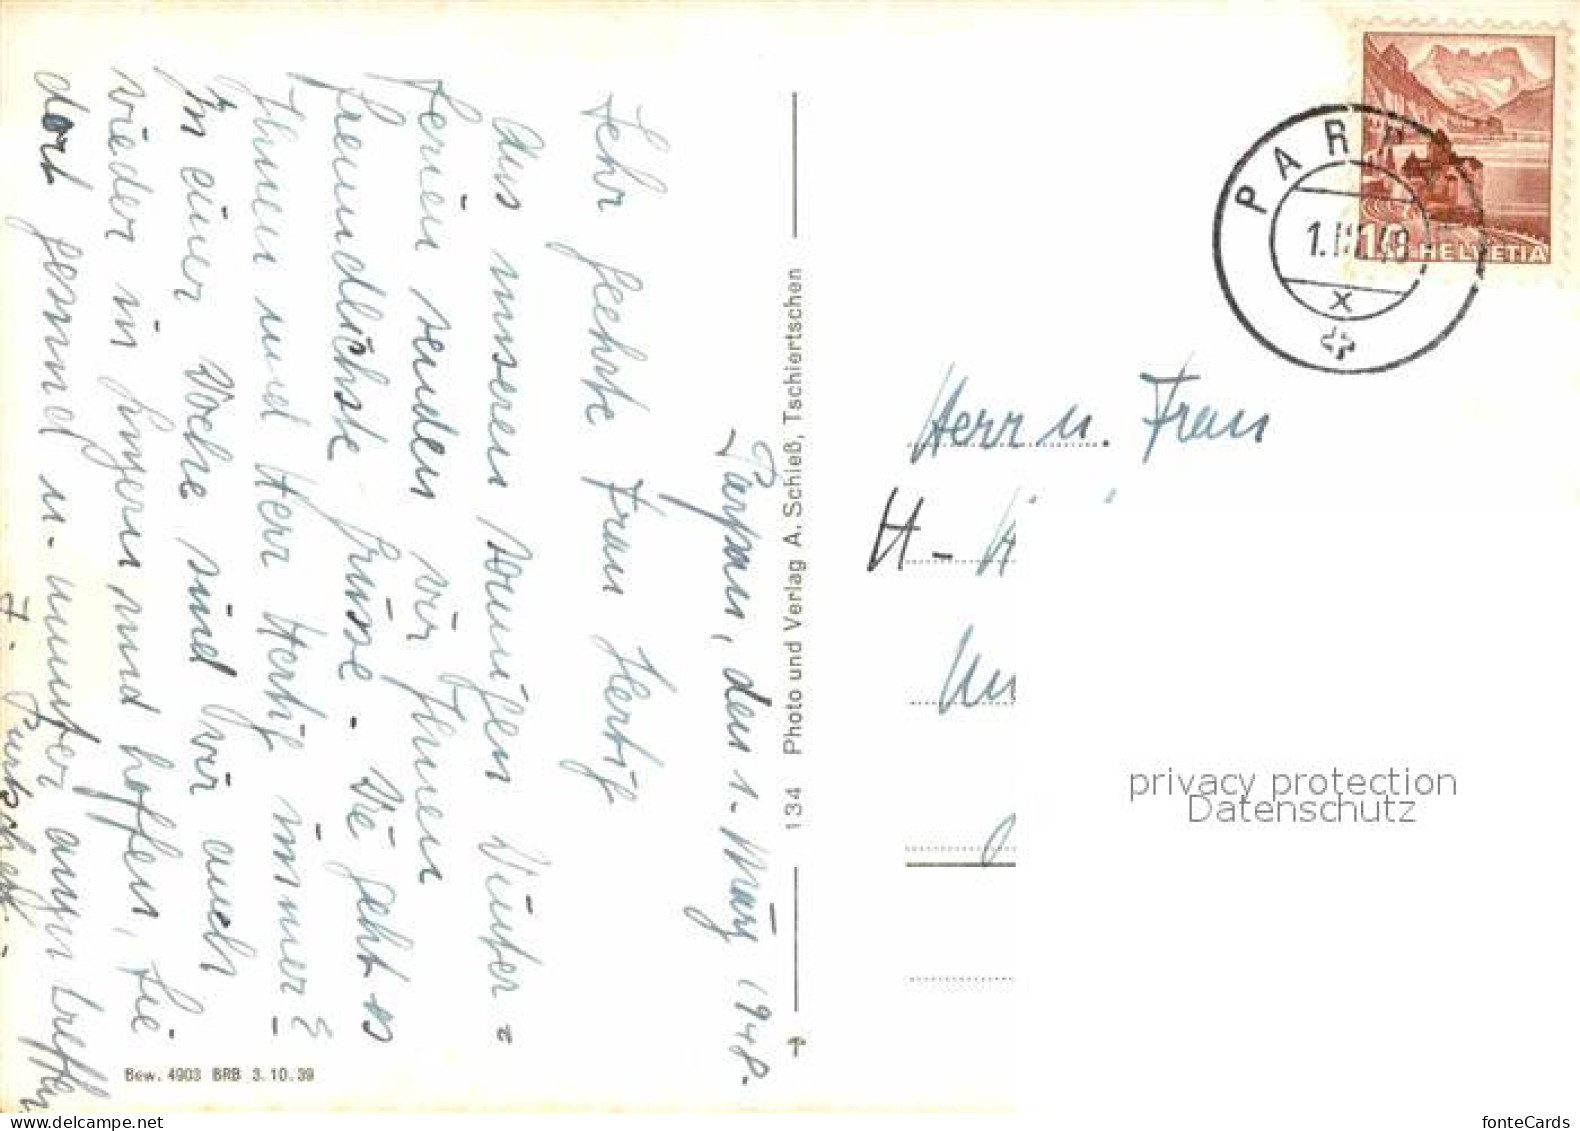 Parpan, den 1. März 1948.
Sehr geehrte Frau Hertig
Aus unseren sonnigen Winter=
ferien senden wir Ihnen
freundlichste Grüsse. Wie geht es
Ihnen und Herr Hertig immer?
In einer Woche sind wir auch
wieder in und hoffen, Sie
dort gesund u. munter treffen
134 Photo und Verlag A. Schieß, Tschiertschen
Bew. 4903 BRB 3.10.39
PARPAN
10 HELVETIA
x
Herr u. Frau
H -
privacy protection
Datenschutz
fonteCards